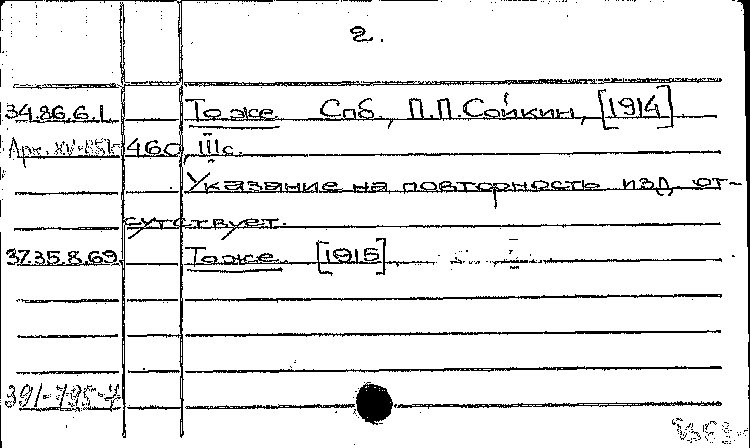 2.
34.86.6.1. То же Спб., П.П.Сойкин, [1914]
Арх. 460, IIIс.
Указание на повторность изд. от-
сутствует.
37.35.8.69. То же [1915]
391-795-7